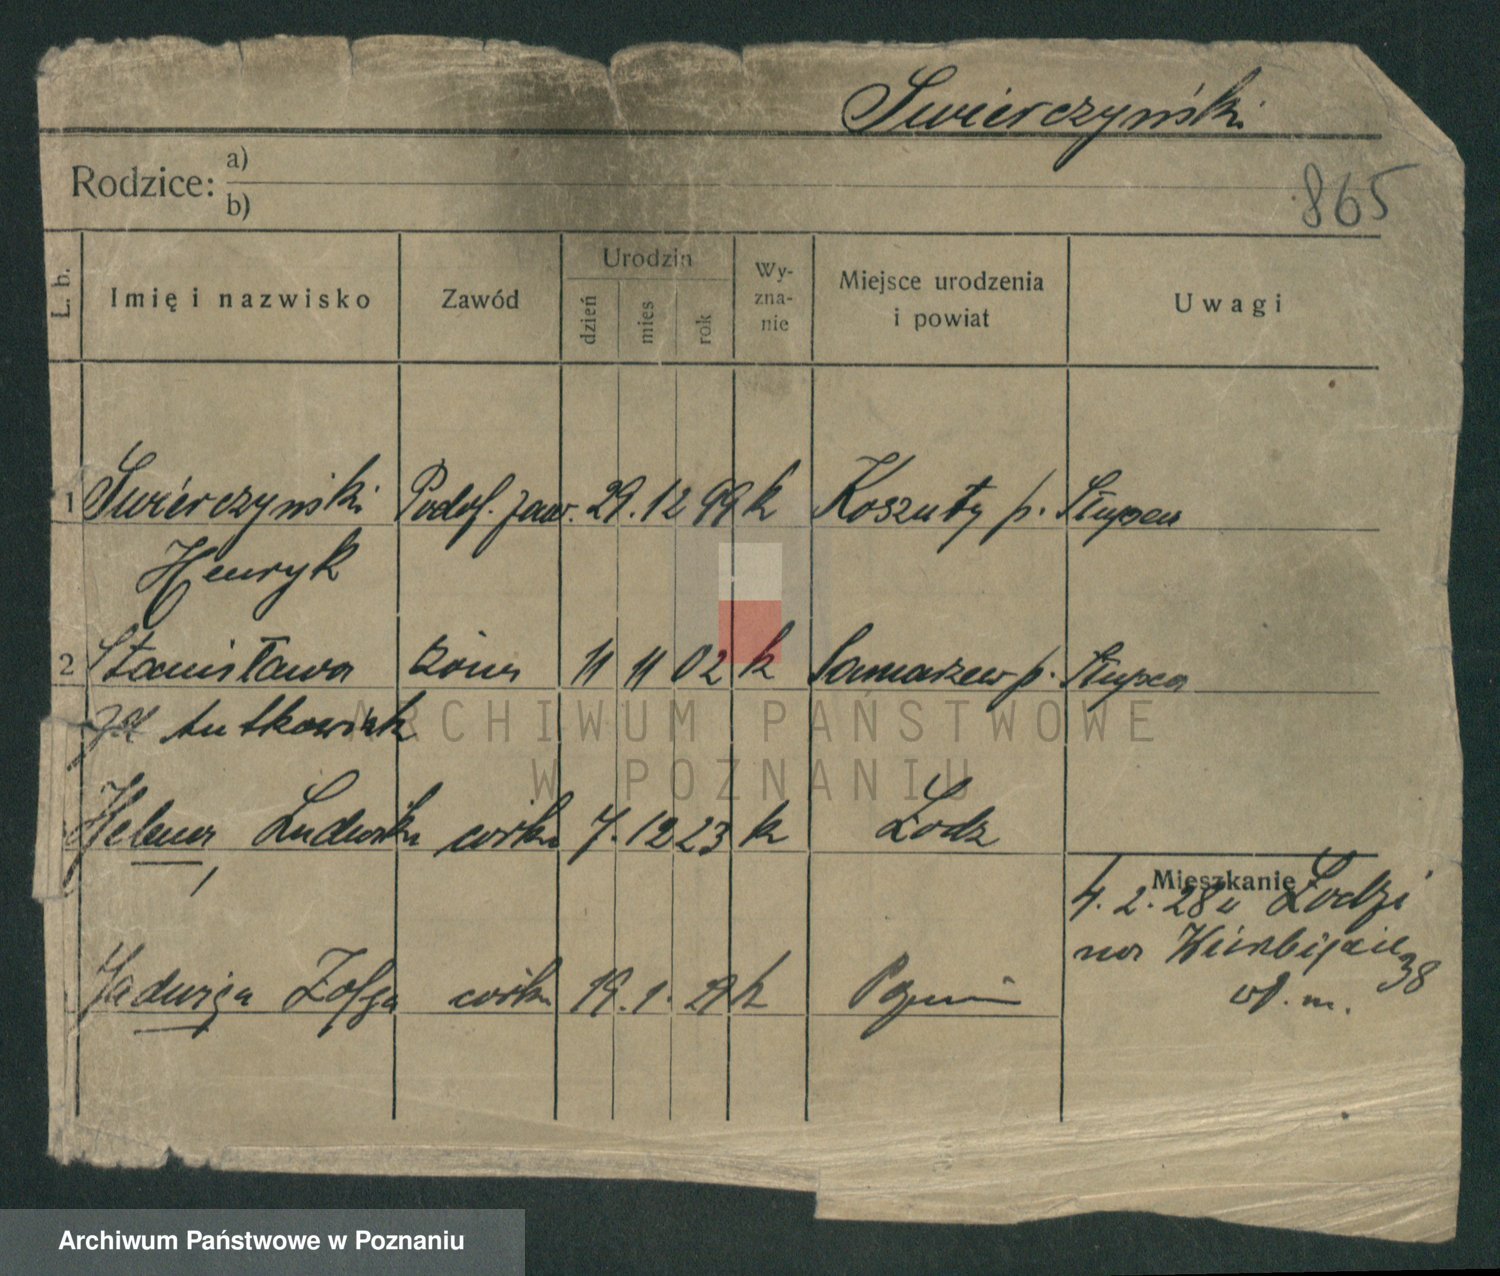 Swierczyński
Rodzice: a)
b)
865
L. b.
Imię i nazwisko
Zawód
Urodzin
dzień
mies
rok
Wy-
zna-
nie
Miejsce urodzenia
i powiat
Uwagi
1 Swierczyński Podof. zaw. 29. 12 99 k Koszuty p. Słupca
Henryk
2 Stanisława żona 11 11 02 k Samarzew p. Słupca
Lutkowiak
Helena Ludwika córka 7. 12 23 k Łodz
Mieszkanie
4. 2. 28 u Łodzi
Jadwiga Zofja córka 19. 1. 29 k Poznań
38
ARCHIWUM PAŃSTWOWE
W POZNANIU
Archiwum Państwowe w Poznaniu